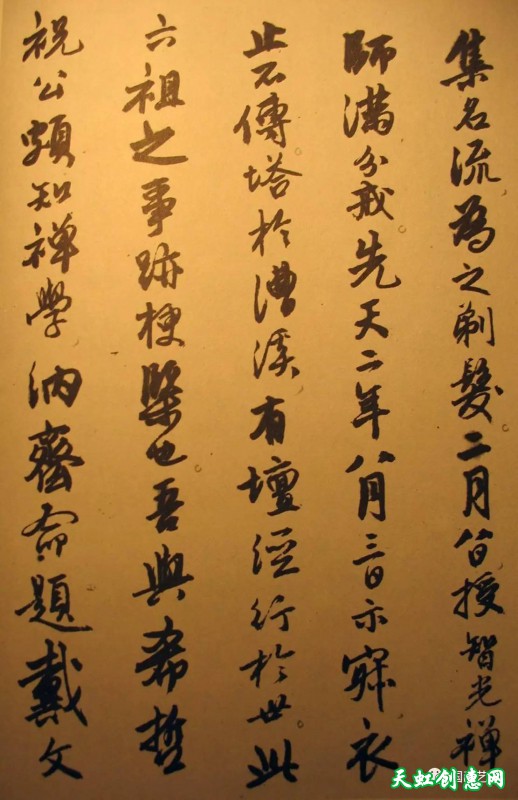 集名流為之剃髮二月八日授智光禪
師滿分戒先天二年八月三日示寂衣
止不傳塔於漕溪有壇經行於世此
六祖之事跡梗槩也吾與希哲
祝公頗知禪學納齋命題戴文
天虹创意网